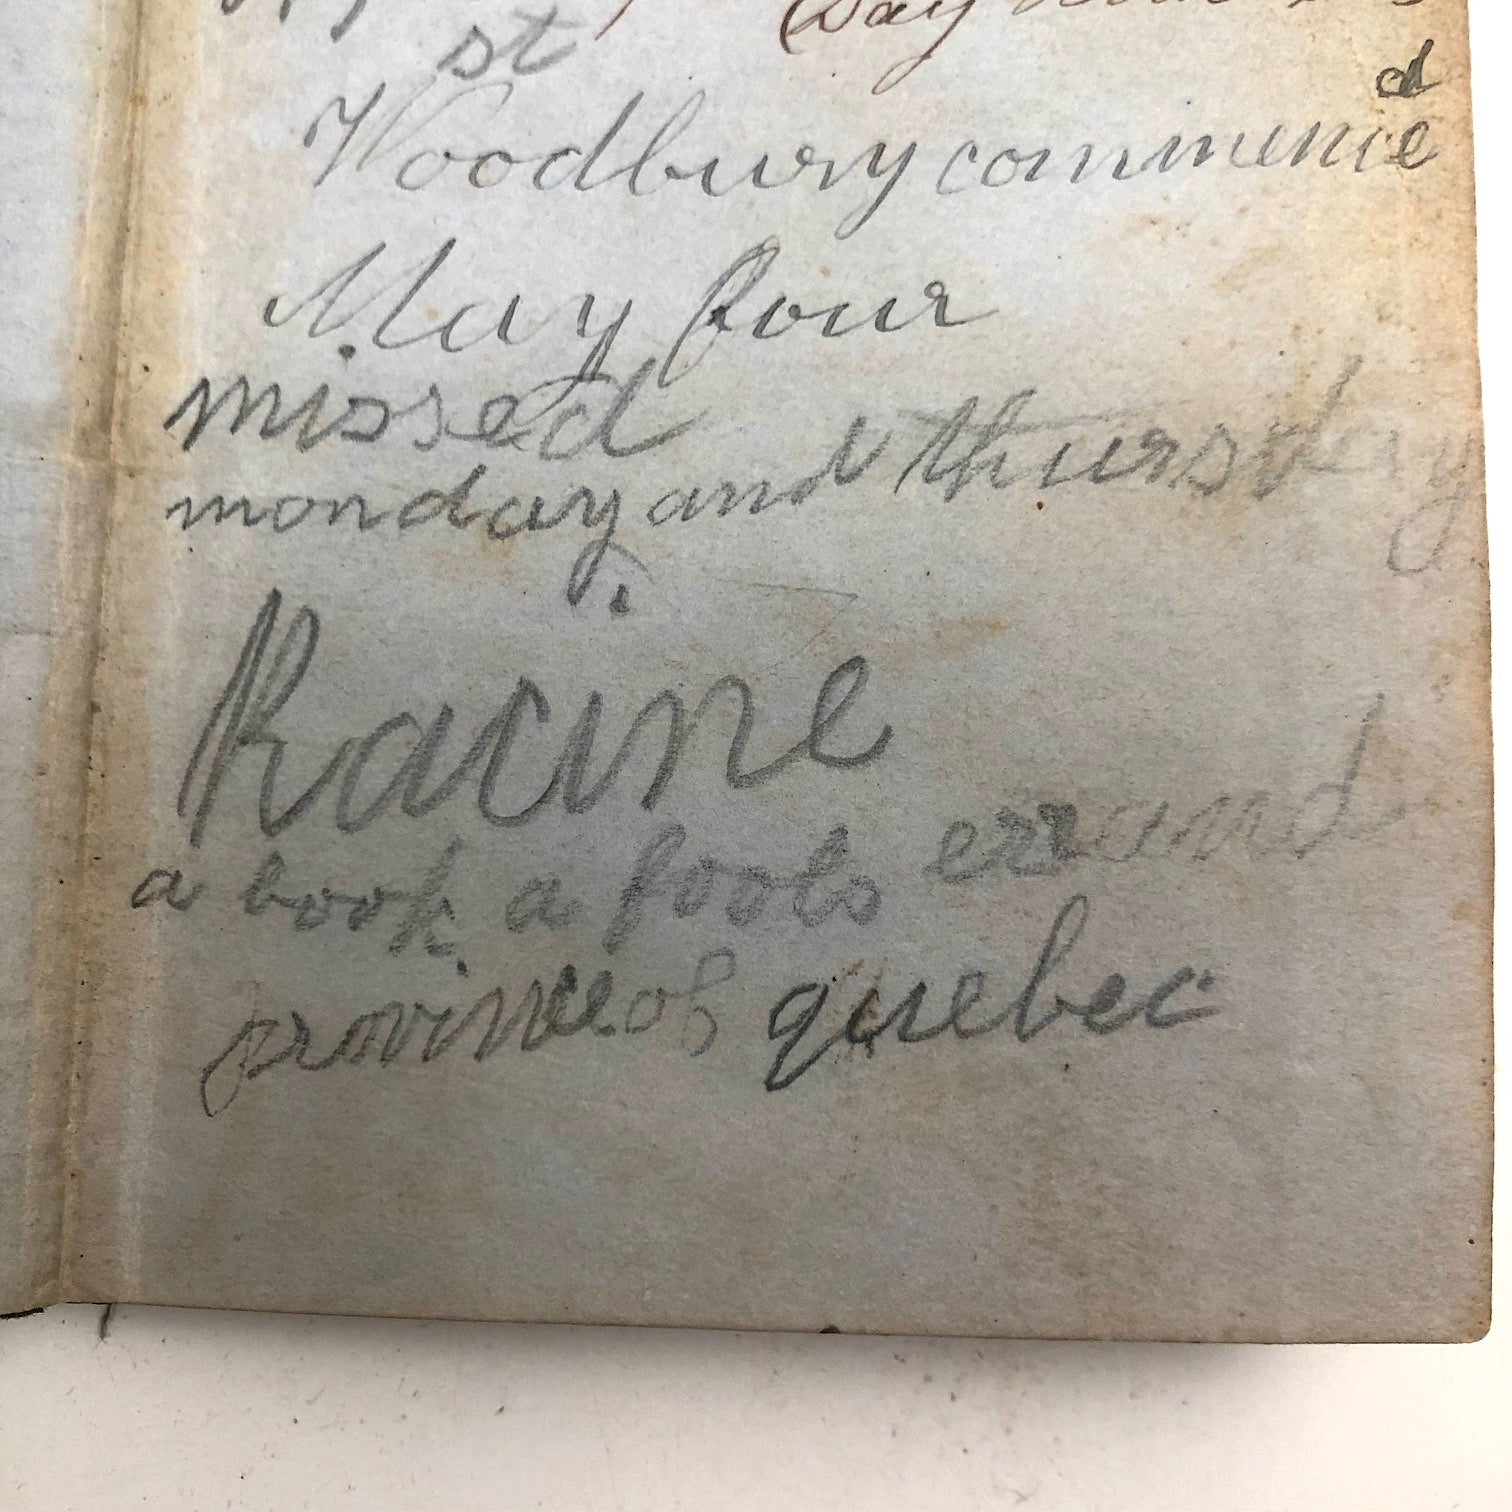 Day
st
Woodbury commenced
May four
missed
monday and thursday
Racine
a book a fools errand
province of quebec